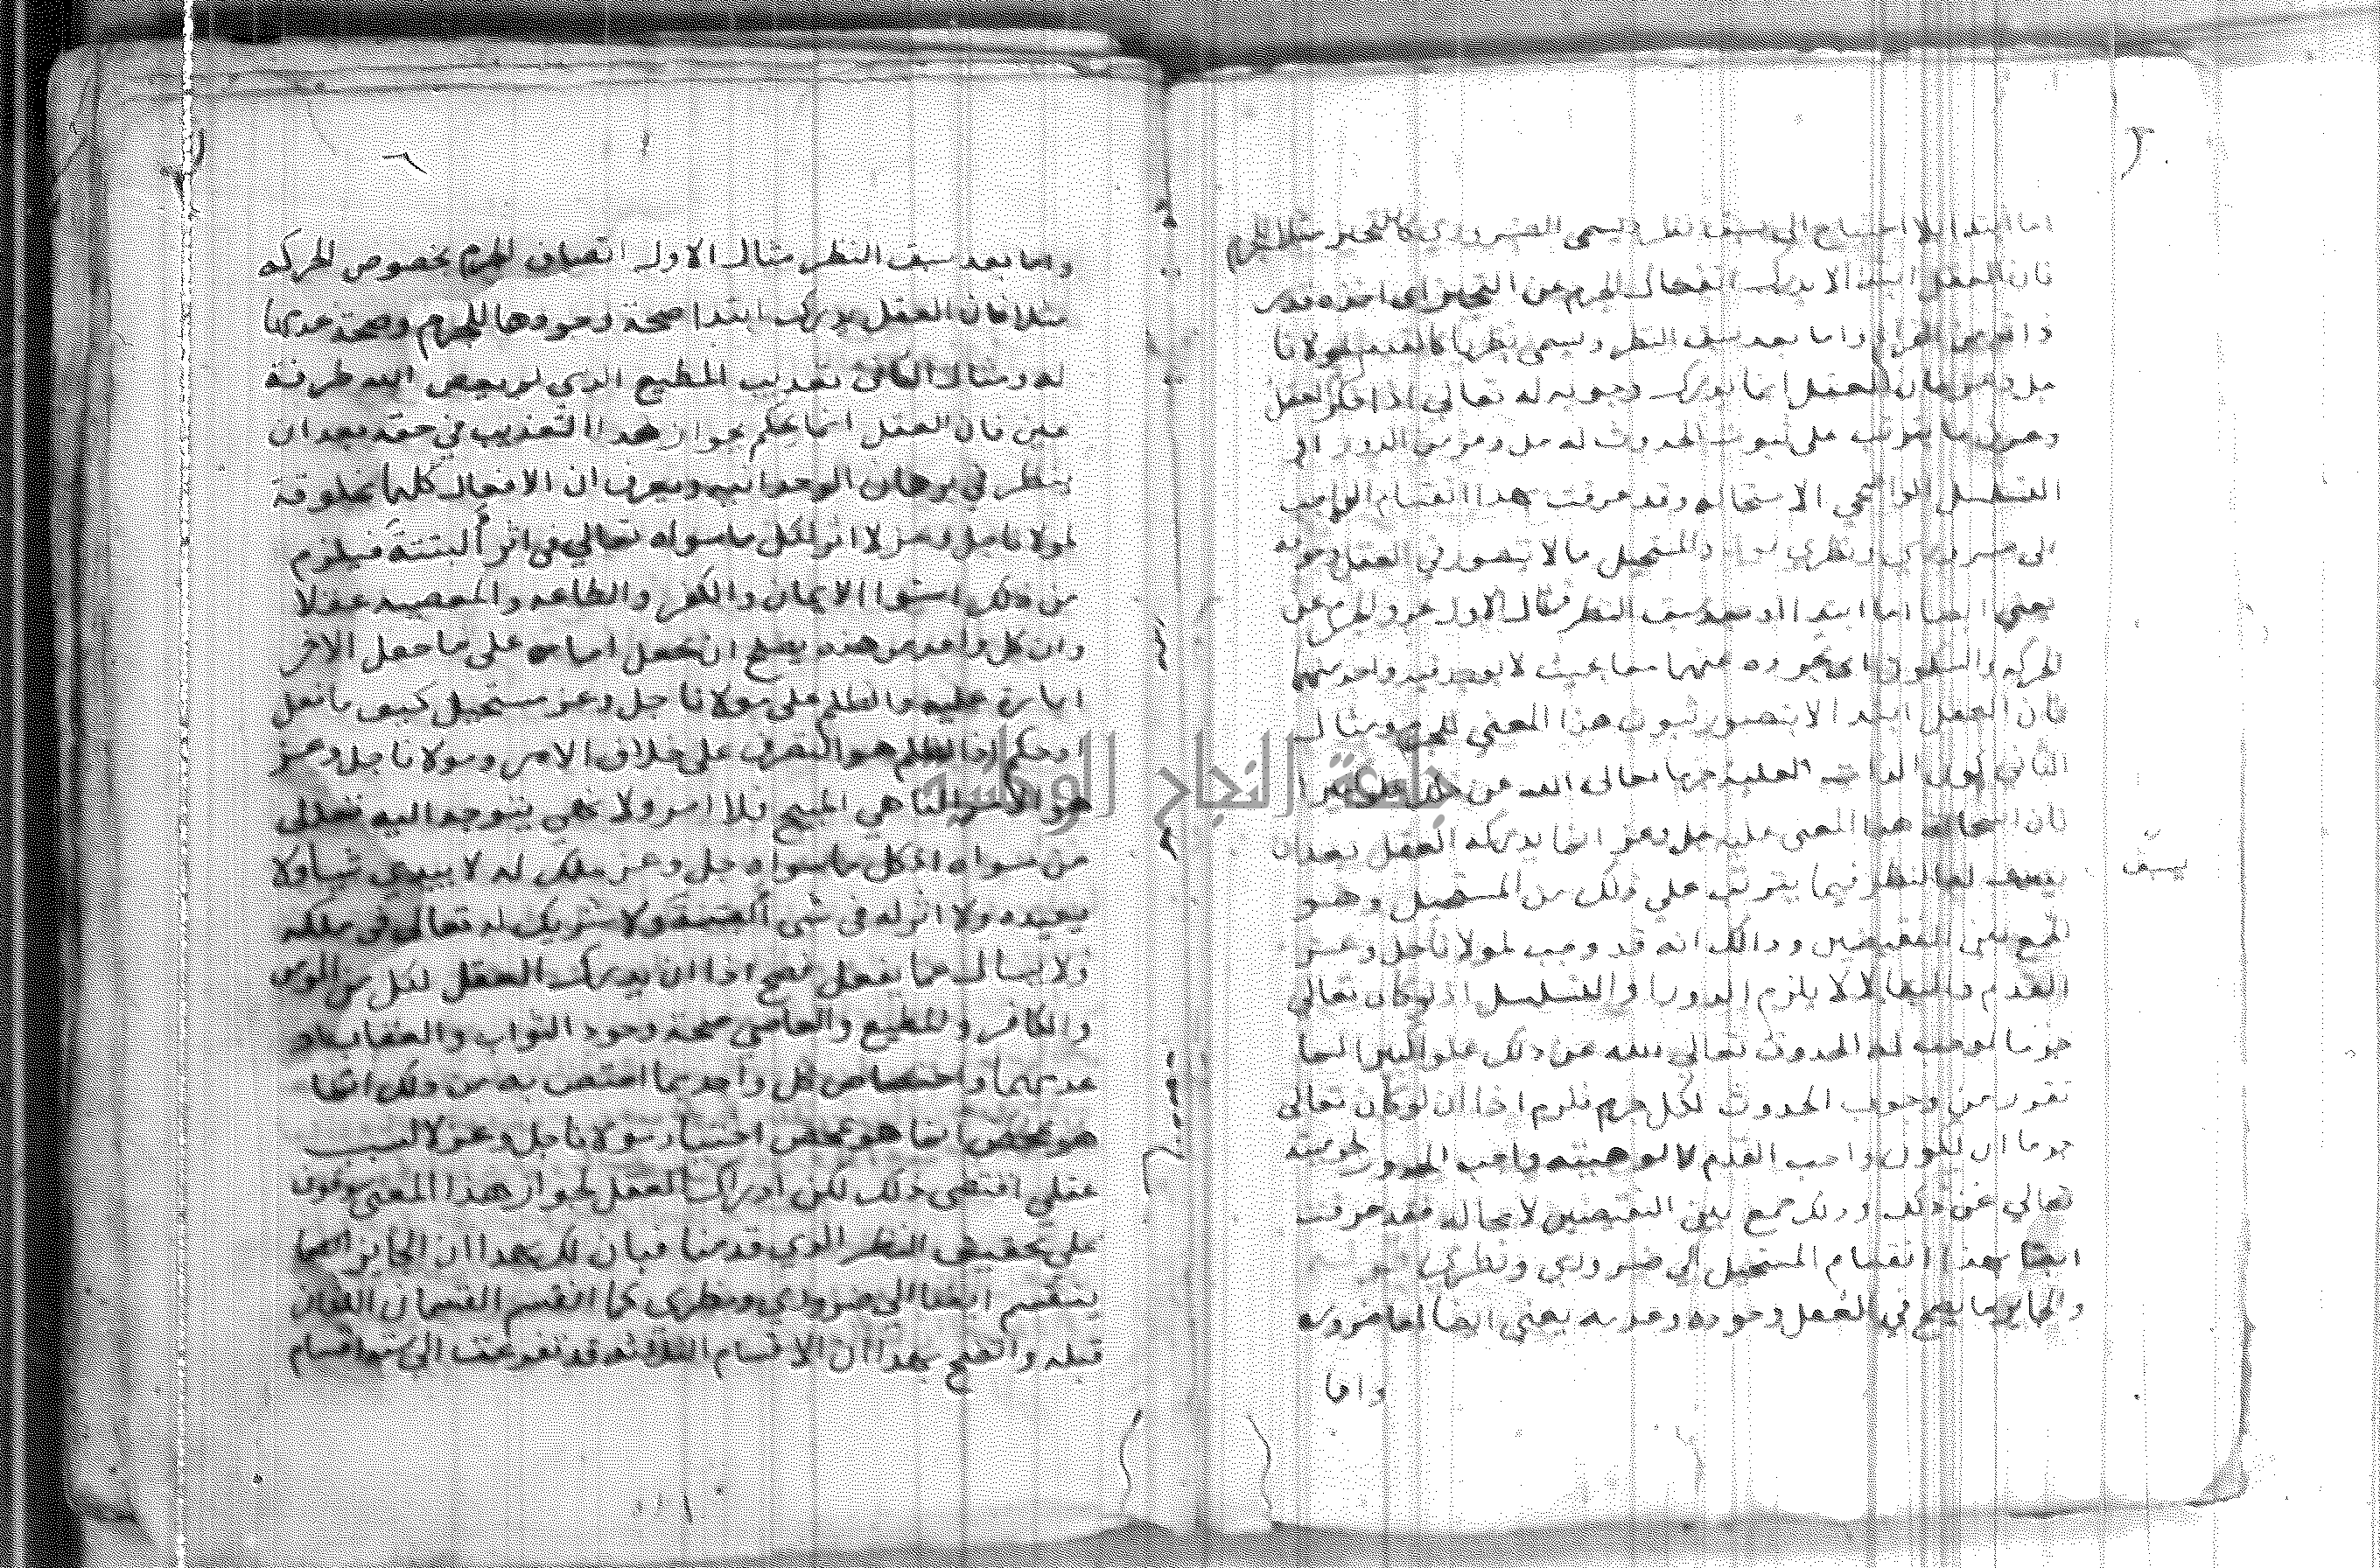 اما ابتدا بلا احتياج الى سبق نظر ويسمى الضروري كالتحيز مثلا للجرم
فان العقل ابتدا لا يدرك انفكاك الجرم عن التحيز اى اخذه قدر
ذاته من الفراغ واما بعد سبق النظر ويسمى نظريا كالقدم لمولانا
جل وعز فان العقل انما يدرك وجوبه له تعالى اذا فكر العقل
وعرف ما يترتب على ثبوت الحدوث له جل وعز من الدور او
التسلسل الواضحي الاستحاله وقد عرفت بهذا انقسام الواجب
الى ضروري ونظري والمستحيل ما لا يتصور في العقل وجوده
يعني ايضا اما ابتدا او بعد سبق النظر فمثال الاول عرو الجرم عن
الحركه والسكون اى تجرده عنهما معا بحيث لا يوجد فيه واحد منهما
فان العقل ابتدا لا يتصور ثبوت هذا المعني للجرم ومثال
الثاني كون الذات العليه جرما تعالى الله عن ذلك علوا كبيرا
فان استحاله هذا المعنى عليه جل وعز انما يدركه العقل بعد ان
يسبق لها النظر فيما يترتب علي ذلك من المستحيل وهو
الجمع بين النقيضين وذالك انه قد وجب لمولانا جل وعز
القدم والبقا لا يلزم الدور او التسلسل اذ لو كان تعالي
جرما لوجب له الحدوث تعالي الله عن ذلك علوا كبيرا لما
تقرر من وجوب الحدوث لكل جرم فلزم اذا ان لو كان تعالى
جرما ان يكون واجب القدم لالوهيته واجب الحدوث لجرميته
تعالي عن ذلك وذلك جمع بين النقيضين لا محاله فقد عرفت
ايضا بهذا انقسام المستحيل الي ضروري ونظري
والجايز ما يصح في العقل وجوده وعدمه يعني ايضا اما ضروره
واما
يسبق
واما بعد سبق النظر مثال الاول اتصاف الجرم بخصوص الحركه
مثلا فان العقل يدرك ابتدا صحة وجودها للجرم وصحة عدمها
له ومثال الثاني تعذيب المطيع الذي لم يعص الله طرفة
عين فان العقل انما يحكم بجواز هذا التعذيب في حقه بعد ان
ينظر في برهان الوحدانيه ويعرف ان الافعال كلها مخلوقة
لمولانا جل وعز لا اثر لكل ما سواه تعالي في اثر ألبتتة فيلزم
من ذلك استوا الايمان والكفر والطاعه والمعصيه عقلا
وان كل واحد من هذه يصلح ان يجعل امارة على ما جعل الاخر
امارة عليه والظلم على مولانا جل وعز مستحيل كيف ما فعل
او حكم اذ الظلم هو التصرف على خلاف الامر ومولانا جل وعز
هو الآمر الناهي المبيح فلا امر ولا نهي يتوجه اليه تعالى
من سواه اذ كل ما سواه جل وعز ملك له لا يبدي شيأ ولا
يعيده ولا اثر له في شي ألبتة ولا شريك له تعالى في ملكه
ولا يسال عما يفعل فصح اذا ان يدرك العقل لكل من المومن
والكافر والمطيع والعاصي صحة وجود الثواب والعقاب او
عدمهما واختصاص كل واحد بما اختص به من ذلك انما
هو بمحض اختيار مولانا جل وعز لا لسبب
عقلي اقتضى ذلك لكن ادراك العقل لجواز هذا المعنى موقوف
على تحقيق النظر الذي قدمنا فبان لك بهذا ان الجايز ايضا
ينقسم ايضا الي ضروري ونظري كما انقسم القسمان اللذان
قبله واتضح بهذا ان الاقسام الثلاثه قد تفرعت الى ستة اقسام
جامعة النجاح الوطنية